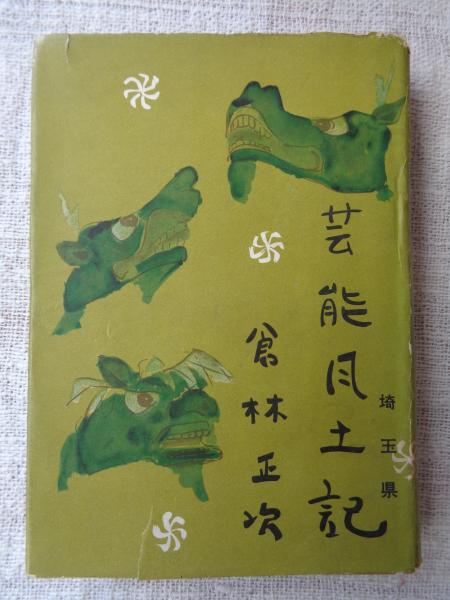 芸能風土記
埼玉県
倉林正次